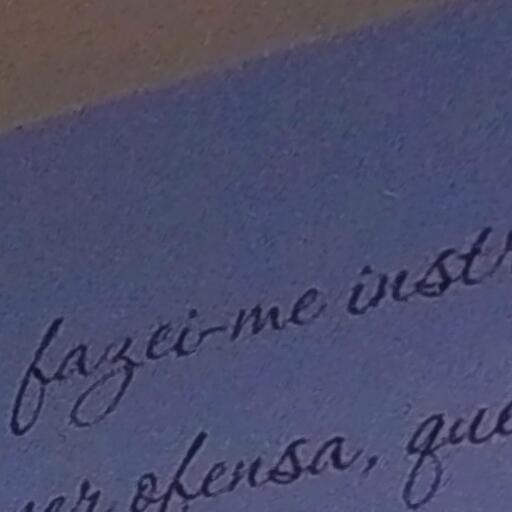 fazei-me inst
ofensa, que